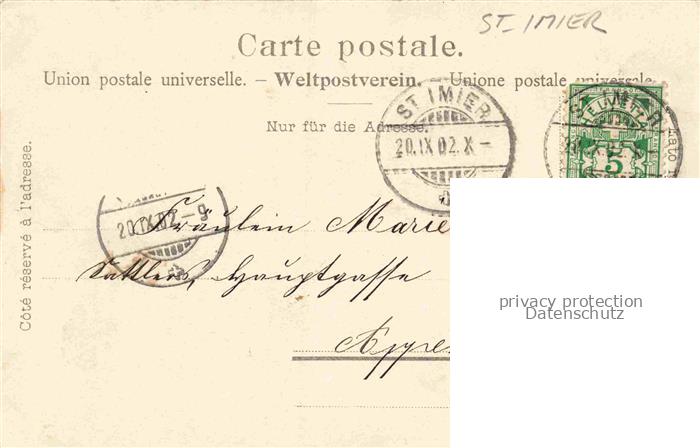 ST. IMIER
Carte postale.
Union postale universelle. – Weltpostverein. – Unione postale universale.
Nur für die Adresse.
Côté réservé à l'adresse.
ST IMIER
20.IX.02.X–
5
20.IX.02.–9
Fräulein Marie
Hauptgasse
privacy protection
Datenschutz